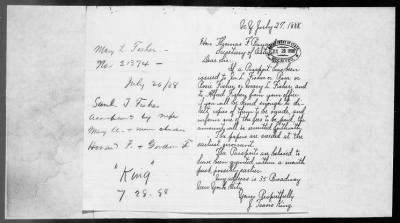 Mary L. Fisher —
No 21374 —
July 26/88
Saml J Fisher
Accompanied by wife
Mary A. + minor children
Howard F. + Gordon F
"King"
7 28. 88
N.Y. July 27. 1888
Hon Thomas F.
Secretary of
Dear Sir.
If a Passport has been
issued to L. Fisher or
Fisher, or Mary L. Fisher, and
to Alfred from your office
you will be kind enough to
copies of them to be made, and
inform me of the fees to be paid, the
amount will be remitted forthwith.
The papers are needed at the
earliest moment.
The Passports are believed to
have been granted within a month
past, possibly earlier.
My address is 35 Broadway
New York City.
Yours Respectfully,
J King.